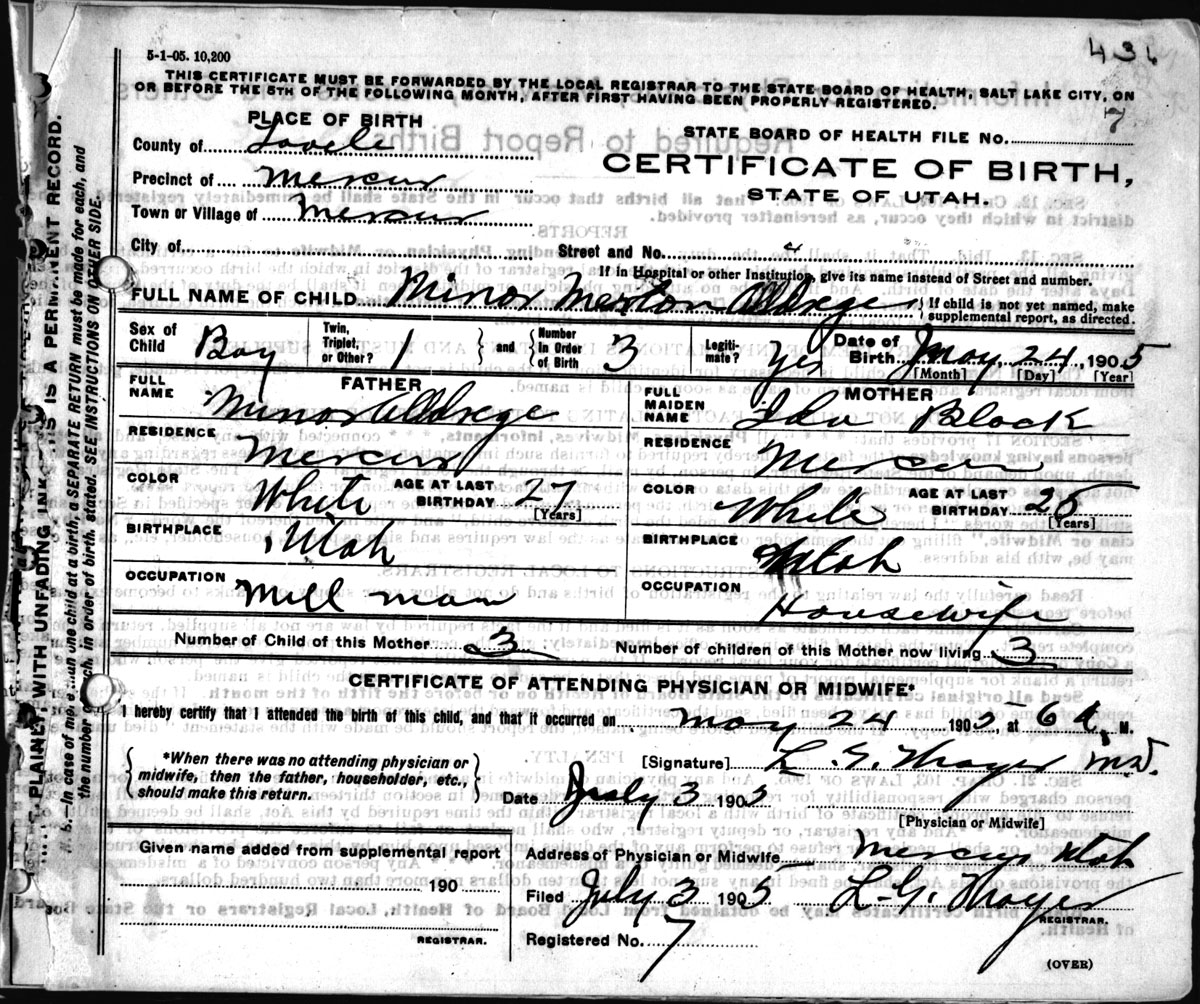 5-1-05. 10,200
436
THIS CERTIFICATE MUST BE FORWARDED BY THE LOCAL REGISTRAR TO THE STATE BOARD OF HEALTH, SALT LAKE CITY, ON
OR BEFORE THE 5TH OF THE FOLLOWING MONTH, AFTER FIRST HAVING BEEN PROPERLY REGISTERED.
7
PLACE OF BIRTH
County of Tooele
Precinct of Mercur
Town or Village of Mercur
City of
STATE BOARD OF HEALTH FILE NO.
CERTIFICATE OF BIRTH,
STATE OF UTAH.
Street and No.
If in Hospital or other Institution, give its name instead of Street and number.
FULL NAME OF CHILD Minor Merton Alldrege { If child is not yet named, make
supplemental report, as directed.
Sex of Child Boy
Twin, Triplet, or Other? 1 } and { Number in Order of Birth 3
Legiti-mate? Yes
Date of Birth May 24, 1905
[Month] [Day] [Year]
FATHER
FULL NAME Minor Alldrege
RESIDENCE Mercur
COLOR White AGE AT LAST BIRTHDAY 27
[Years]
BIRTHPLACE Utah
OCCUPATION Mill man
MOTHER
FULL MAIDEN NAME Ida Black
RESIDENCE Mercur
COLOR White AGE AT LAST BIRTHDAY 25
[Years]
BIRTHPLACE Utah
OCCUPATION Housewife
Number of Child of this Mother 3 Number of children of this Mother now living 3
CERTIFICATE OF ATTENDING PHYSICIAN OR MIDWIFE*
I hereby certify that I attended the birth of this child, and that it occurred on May 24 1905, at 6 A. M.
{ *When there was no attending physician or
midwife, then the father, householder, etc.,
should make this return. }
[Signature] L. G. Thayer M.D.
Date July 3 1905
[Physician or Midwife]
Given name added from supplemental report
190
REGISTRAR.
Address of Physician or Midwife Mercur Utah
Filed July 3 1905 L. G. Thayer
REGISTRAR.
Registered No. 7
(OVER)
PLAINLY WITH UNFADING INK IS A PERMANENT RECORD.
N. B.—In case of more than one child at a birth, a SEPARATE RETURN must be made for each, and
the number of each, in order of birth, stated. SEE INSTRUCTIONS ON OTHER SIDE.